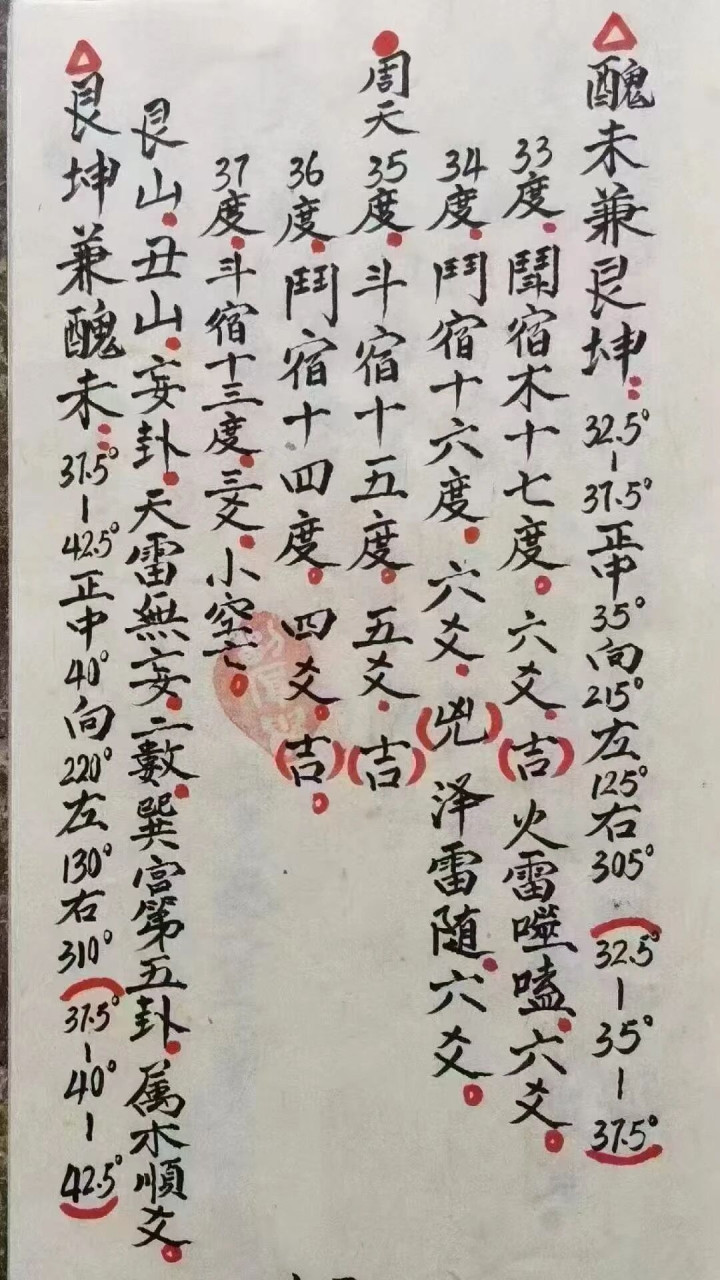 醜未兼艮坤：32.5°-37.5°正中35°向215°左125°右305°（32.5°-35°-37.5°）
33度.鬪宿木十七度.六爻.（吉）火雷噬嗑.六爻.
34度.鬥宿十六度.六爻.（兇）泽雷随.六爻.
周天35度.斗宿十五度.五爻.（吉）
36度.鬥宿十四度.四爻.（吉）.
37度.斗宿十三度.三爻.小空亡.
艮山.丑山.妄卦.天雷無妄.二數.巽宫第五卦.属木順爻.
艮坤兼醜未：37.5°-42.5°正中40°向220°左130°右310°（37.5°-40°-42.5°）